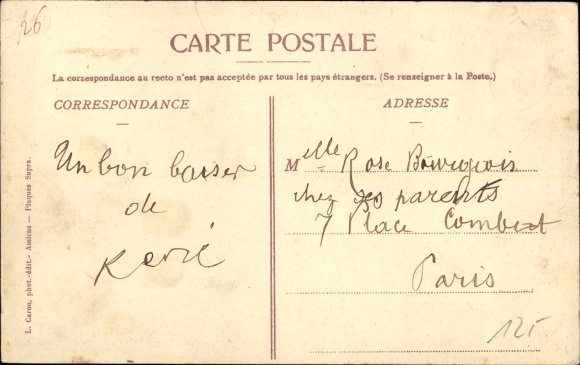 26
CARTE POSTALE
La correspondance au recto n'est pas acceptée par tous les pays étrangers. (Se renseigner à la Poste.)
CORRESPONDANCE
Un bon baiser
de
René
ADRESSE
Melle Rose Bourgeois
chez ses parents
7 Place Combat
Paris
125
L. Caron, phot.-édit.- Amiens — Plaques Supra.